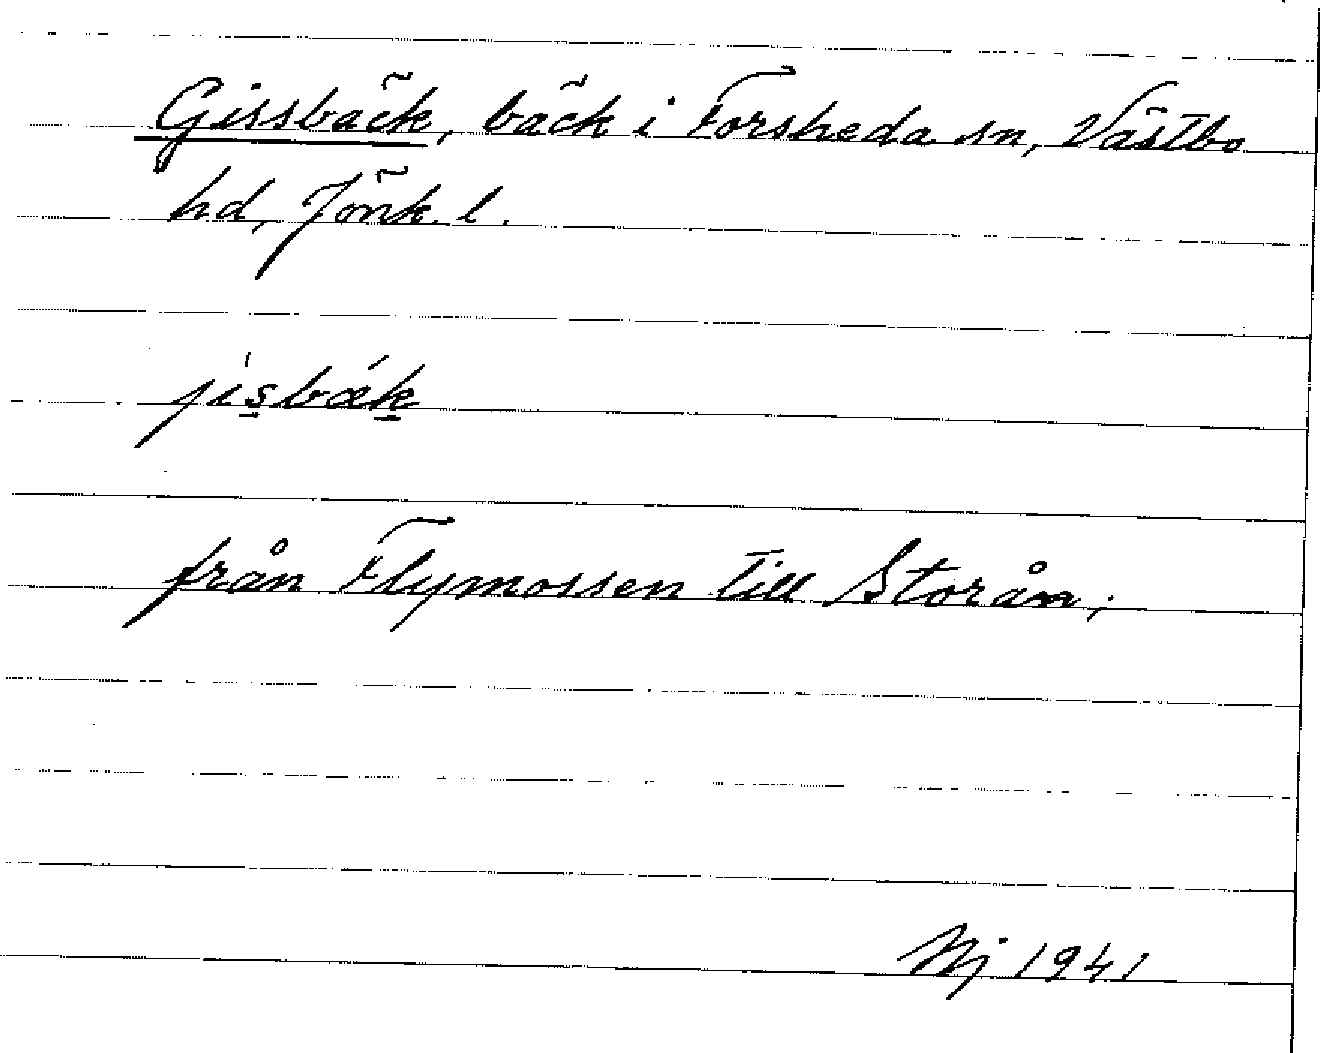 Gissbäck, bäck i Forsheda sn, Västbo
hd, Jönk. l.
ji̍s̲bǽk̲
från Flymossen till Storån;
Nj 1941